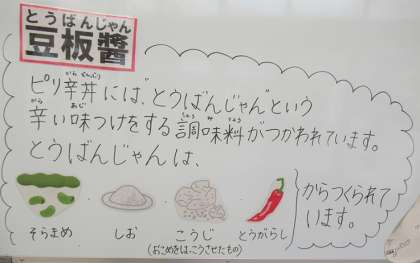 とうばんじゃん
豆板醬
ピリ辛丼には、"とうばんじゃん"という
辛い味つけをする調味料がつかわれています。
とうばんじゃんは、
そらまめ ・ しお ・ こうじ ・ とうがらし
(おこめをはっこうさせたもの)
からつくられて
います。